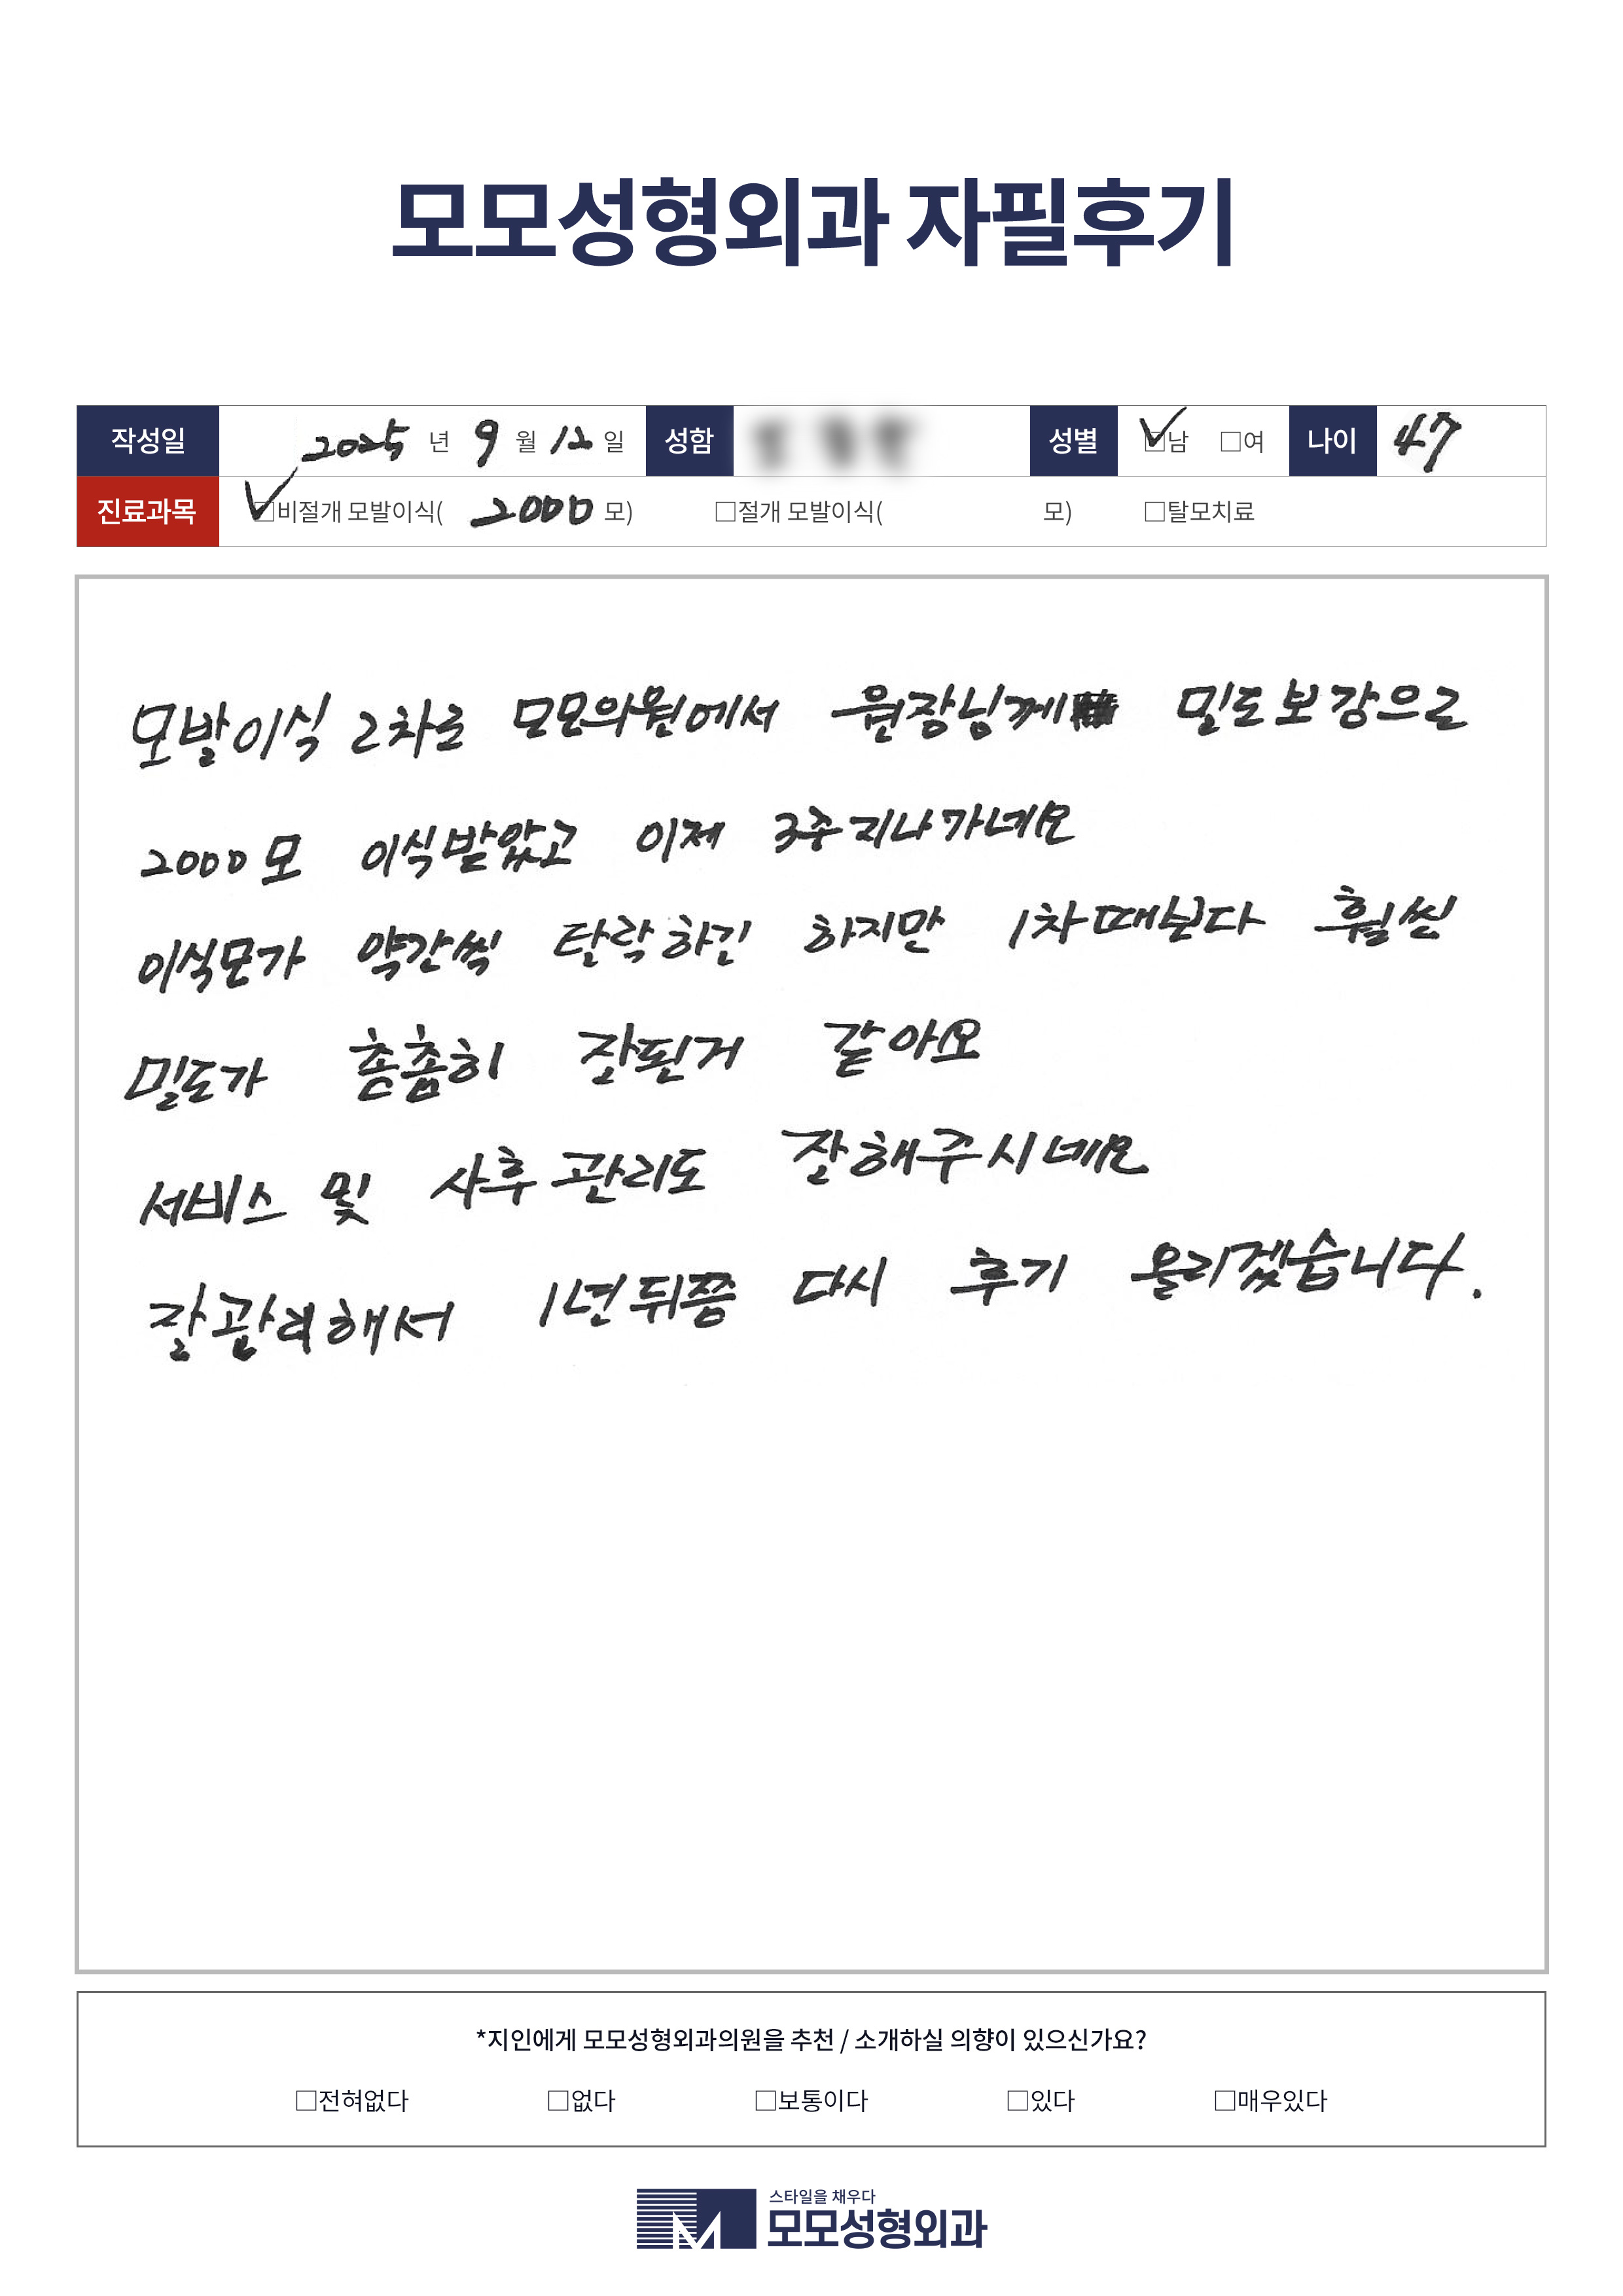 모모성형외과 자필후기
작성일 2025 년 9 월 12 일 성함 성별 □남 □여 나이 47
진료과목 □비절개 모발이식( 2000 모) □절개 모발이식( 모) □탈모치료
모발이식 2차로 모모의원에서 원장님께 밀도보강으로
2000모 이식받았고 이제 3주 지나가네요
이식모가 약간씩 탈락하긴 하지만 1차때보다 훨씬
밀도가 촘촘히 잘된거 같아요
서비스 및 사후관리도 잘해주시네요
잘관리해서 1년뒤쯤 다시 후기 올리겠습니다.
*지인에게 모모성형외과의원을 추천 / 소개하실 의향이 있으신가요?
□전혀없다 □없다 □보통이다 □있다 □매우있다
스타일을 채우다
모모성형외과